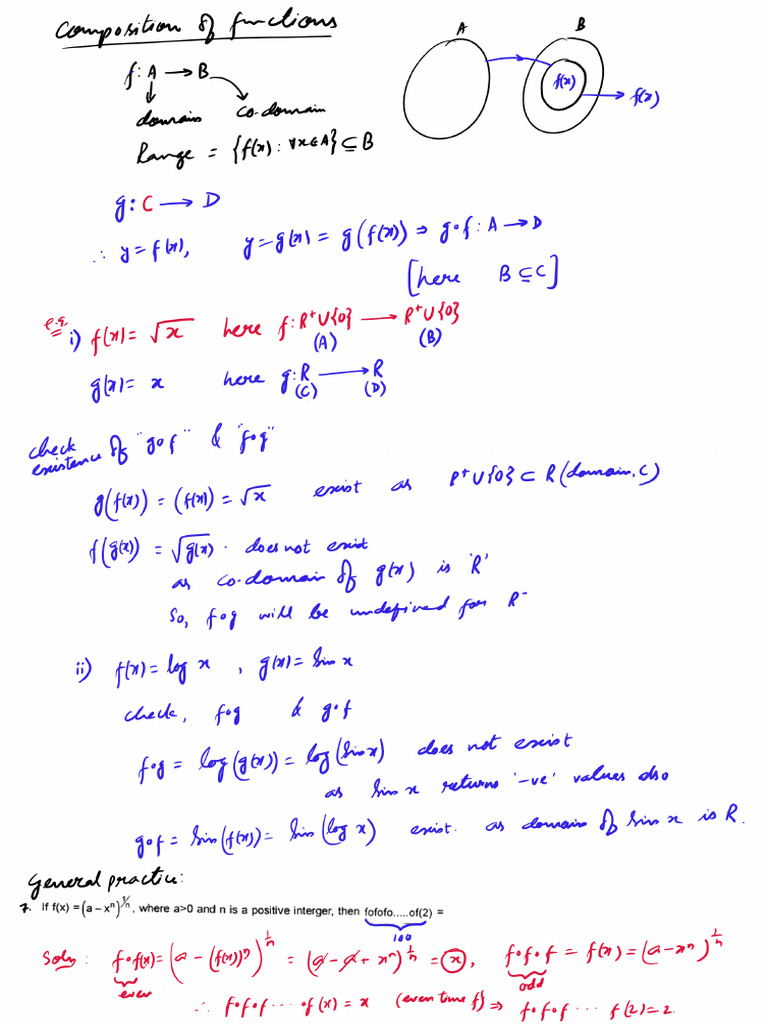 Composition of functions
A B
f: A → B
f(x) → f(x)
domain co-domain
Range = {f(x) : ∀x∈A} ⊆ B
g: C → D
∴ y = f(x), y = g(x) = g(f(x)) ⇒ g∘f : A → D
[here B ⊆ C]
e.g.
i) f(x) = √x here f: R⁺∪{0} → R⁺∪{0}
(A) (B)
g(x) = x here g: R → R
(C) (D)
check existence of "g∘f" & "f∘g"
g(f(x)) = (f(x)) = √x exist as R⁺∪{0} ⊂ R (domain, C)
f(g(x)) = √g(x) . does not exist
as co-domain of g(x) is 'R'
So, f∘g will be undefined for R⁻
ii) f(x) = log x , g(x) = sin x
check, f∘g & g∘f
f∘g = log(g(x)) = log(sin x) does not exist
as sin x returns '-ve' values also
g∘f = sin(f(x)) = sin(log x) exist. as domain of sin x is R.
General practice:
7. If f(x) = (a – xⁿ)^1/n, where a>0 and n is a positive interger, then fofofo.....of(2) =
100
Soln : f∘f(x) = (a - (f(x))ⁿ)^1/n = (a - a + xⁿ)^1/n = x, f∘f∘f = f(x) = (a - xⁿ)^1/n
even odd
∴ f∘f∘f ... of(x) = x (even time f) ⇒ f∘f∘f ... f(2) = 2.